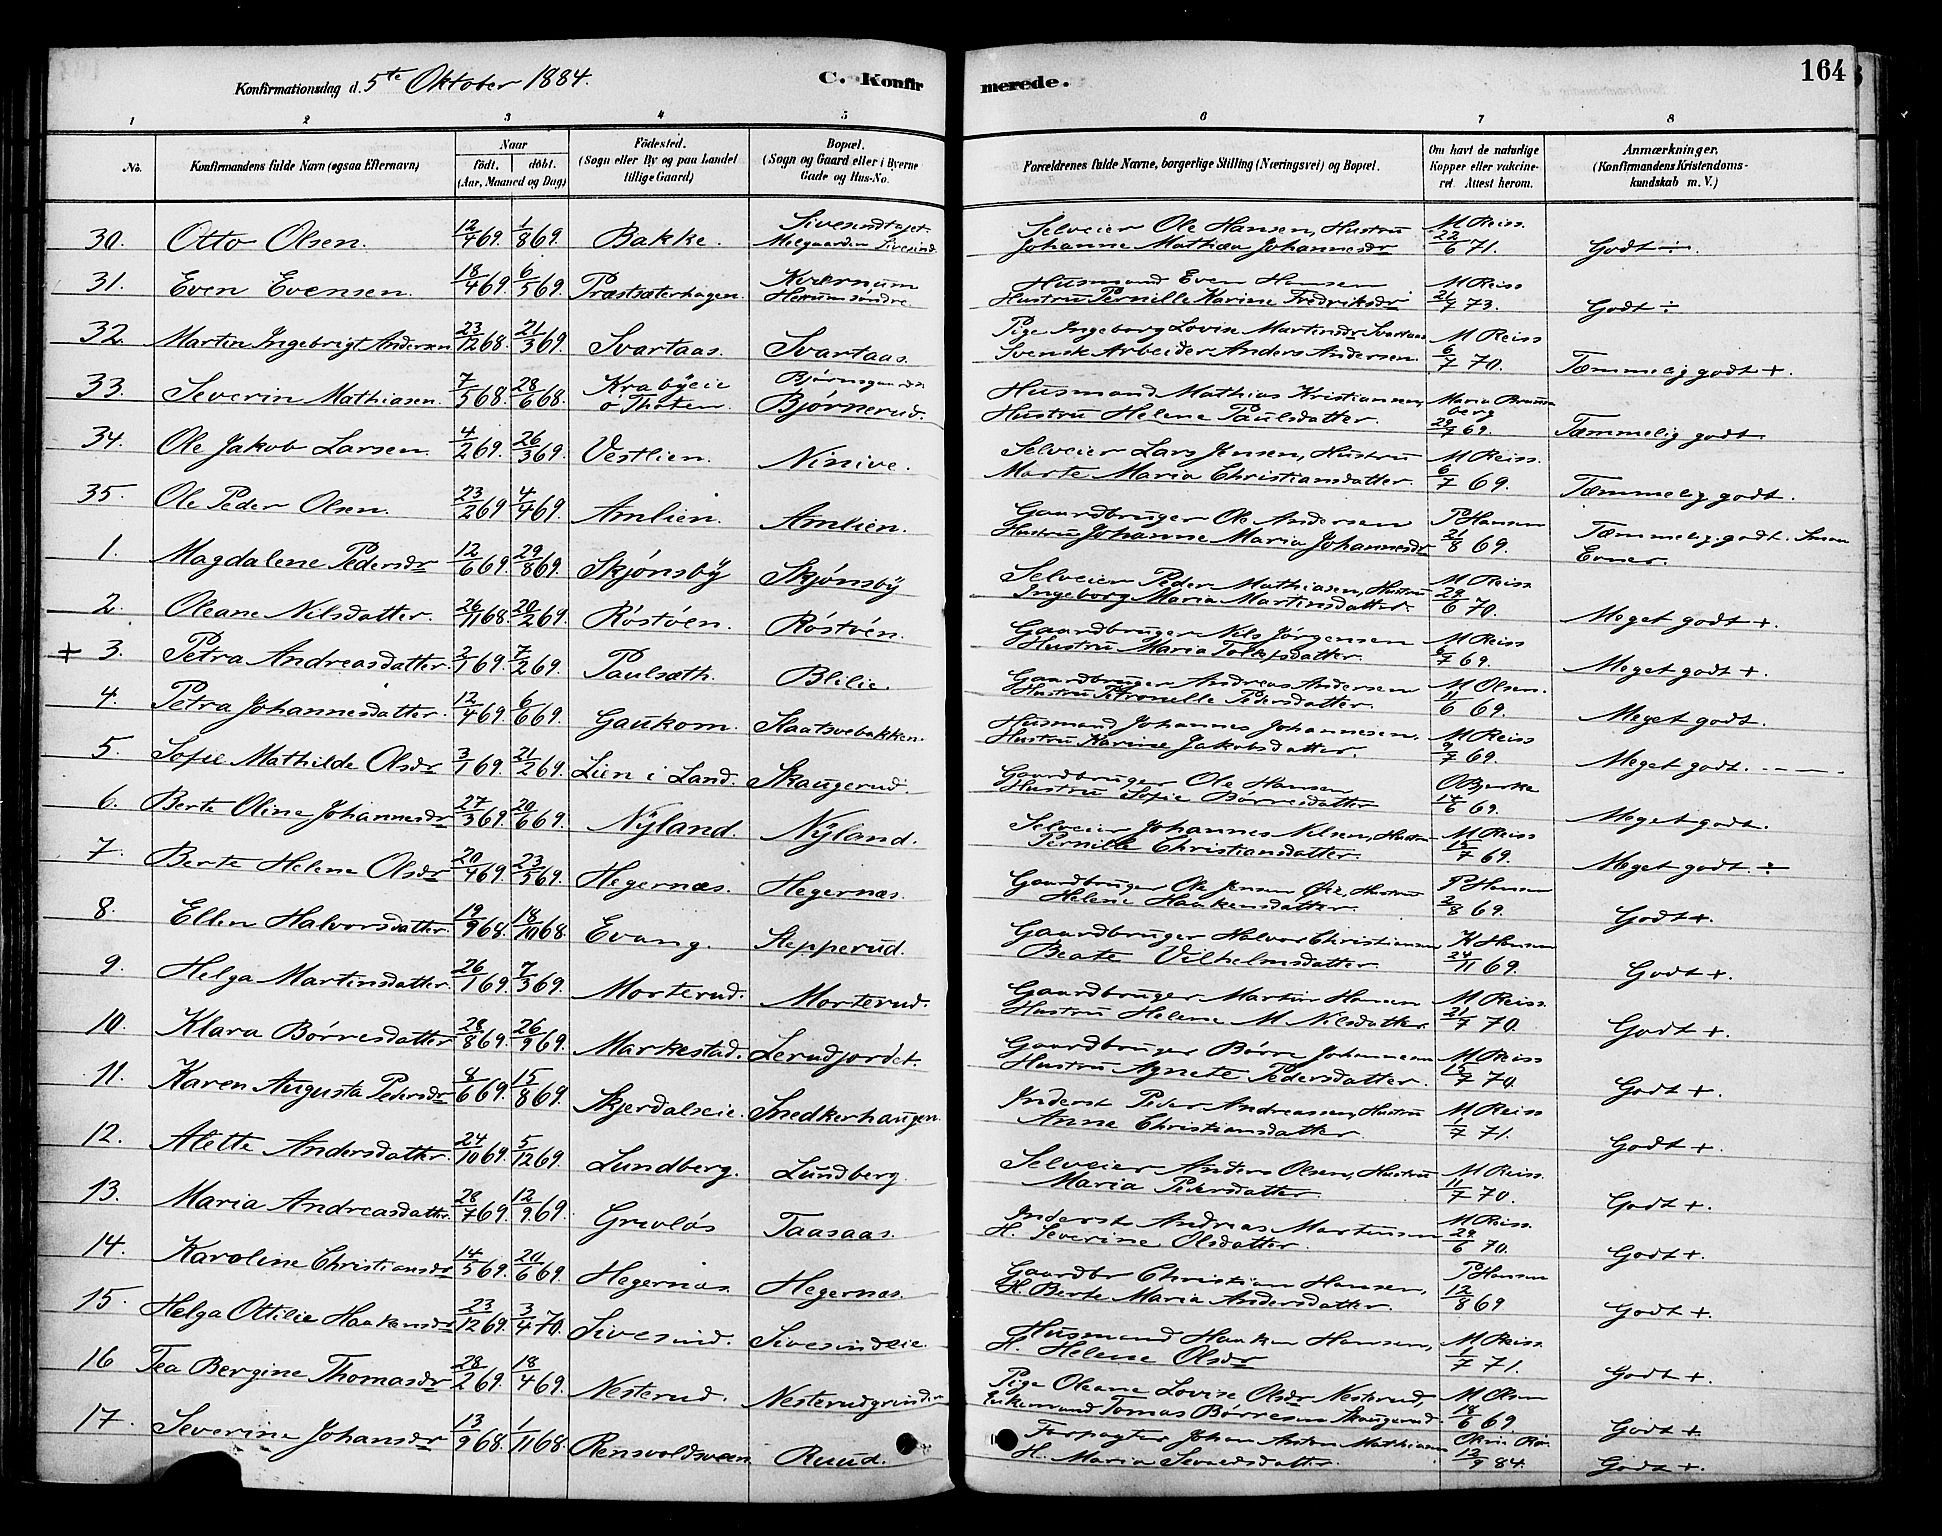 164
Konfirmationsdag d. 5te Oktober 1884.
C. Konfirmerede.
1 2 3 4 5 6 7 8
No. Konfirmandens fulde Navn (ogsaa Efternavn) Naar födt. döbt. (Aar, Maaned og Dag) Födested. (Sogn eller By og paa Landet tillige Gaard) Bopæl. (Sogn og Gaard eller i Byerne Gade og Hus-No. Forældrenes fulde Navne, borgerlige Stilling (Næringsvei) og Bopæl. Om havt de naturlige Kopper eller vakcineret. Attest herom. Anmærkninger, (Konfirmandens Kristendomskundskab m. V.)
30. Otto Olsen. 12/4 69. 1/8 69. Bakke. Sivesind Selveier Ole Hansen, Hustru Johanne Mathea Johannesdr M Reiss 22/6 71. Godt ÷.
31. Even Evensen. 18/4 69. 6/5 69. Præstsæterhagen. Kværnum Husmand Even Hansen Hustru Pernille Karine Fredriksdr M Reiss 21/7 73. Godt ÷
32. Martin Ingebrigt Andersen 23/12 68. 21/3 69. Svartaas. Svartaas. Pige Ingeborg Lovise Martinsdr Svartaas Svensk Arbeider Anders Andersen. M Reiss 6/7 70. Tæmmelig godt +.
33. Severin Mathiasen. 7/5 68. 28/6 68. Krabÿeie ö Thoten. Bjørnerud. Husmand Mathias Kristiansen, Hustru Helene Paulsdatter. Maria 29/7 69. Tæmmelig godt
34. Ole Jakob Larsen. 4/2 69. 26/3 69. Vestlien. Ninive. Selveier Lars Jensen, Hustru Marte Maria Christiansdatter. M Reiss. 6/7 69. Tæmmelig godt.
35. Ole Peder Olsen. 23/2 69 4/4 69. Amlien. Amlien. Gaardbruger Ole Andersen Hustru Johanne Maria Johannesdr P Hansen 21/8 69. Tæmmelig godt. Evner.
1. Magdalene Pedersdr 12/6 69. 29/8 69. Skjønsbÿ Skjønsbÿ Selveier Peder Mathiasen, Hustru Ingeborg Maria Martinsdatter. M Reiss. 29/6 70. Meget godt +.
2. Oleane Nilsdatter. 26/11 68. 20/2 69. Röstöen. Röstöen. Gaardbruger Nils Jörgensen Hustru Maria M Reiss 6/7 69. Meget godt +
+ 3. Petra Andreasdatter. 2/1 69. 7/2 69. Paulsæth. Blilie. Gaardbruger Andreas Andersen Hustru Petronelle Pedersdatter. M Olsen. 11/6 69. Meget godt.
4. Petra Johannesdatter. 12/4 69. 6/6 69. Gaukom. Staatsvebakken. Husmand Johannes Johannesen. Hustru Karine Jakobsdatter. M Reiss 9/7 69. Meget godt. - - -
5. Sofie Mathilde Olsdr 3/1 69. 21/2 69. Lien i Land. Skaugerud. Gaardbruger Ole Hansen Hustru Sofie Børresdatter O Bjerke 14/6 69. Meget godt.
6. Berte Oline Johannesdr 27/3 69. 20/6 69. Nÿland. Nÿland. Selveier Johannes Nilsen, Hustru Pernille Christiansdatter. M Reiss. 15/7 69. Meget godt. ÷
7. Berte Helene Olsdr 20/4 69. 23/5 69. Hegernæs. Hegernæs. Gaardbruger Ole Jensen Hustru Helene Haakensdatter. P Hansen 2/8 69. Godt +.
8. Ellen Halvorsdatter 19/9 68. 18/10 68. Evang. Stepperud. Gaardbruger Halvor Christiansen Beate Vilhelmsdatter. K Hansen 24/11 69. Godt +.
9. Helga Martinsdatter. 26/1 69. 7/3 69. Morterud. Morterud. Gaardbruger Martin Hansen Hustru Helene M Nilsdatter. M Reiss. 21/7 70. Godt +.
10. Klara Børresdatter 28/8 69. 26/9 69. Markestad. Lerudjordet. Gaardbruger Børre Johannesen Hustru Agnete Pedersdatter. M Reiss 15/7 70. Godt +.
11. Karen Augusta Pedersdr 8/6 69. 15/8 69. Skjerdalseie. Snedkerhaugen. Inderst Peder Andreassen, Hustru Anne Christiansdatter. M Reiss 1/7 71. Godt +
12. Alette Andersdatter. 24/10 69. 5/12 69. Lundberg. Lundberg. Selveier Anders Olsen, Hustru Maria Pedersdatter. M Reiss. 11/7 70. Godt +.
13. Maria Andreasdatter. 28/7 69. 12/9 69. Grevløs Taasaas. Inderst Andreas Martinsen H. Severine Olsdatter. M Reiss. 29/6 70. Godt +.
14. Karoline Christiansdr 14/5 69. 20/6 69. Hegernæs. Hegernæs. Gaardbr Christian Hansen, H. Berte Maria Andersdatter. P Hansen 12/8 69 Godt +.
15. Helga Ottilie Haakensdr 23/12 69. 3/4 70. Sivesind. Sivesindeie. Husmand Haaken Hansen, H. Helene Olsdr M Reiss. 1/7 71. Godt +.
16 Tea Bergine Thomasdr 28/2 69. 18/4 69. Nesterud. Pige Oleane Lovise Olsdr Nesterud, Enkemand Tomas Børresen Skaugerud. M Olsen 18/6 69. Godt +
17. Severine Johansdr 13/9 68. 1/11 68. Rensvoldsveen Ruud. Forpagter Johan Anton Mathiasen H. Maria Sivertsdatter. 12/9 84. Godt +.